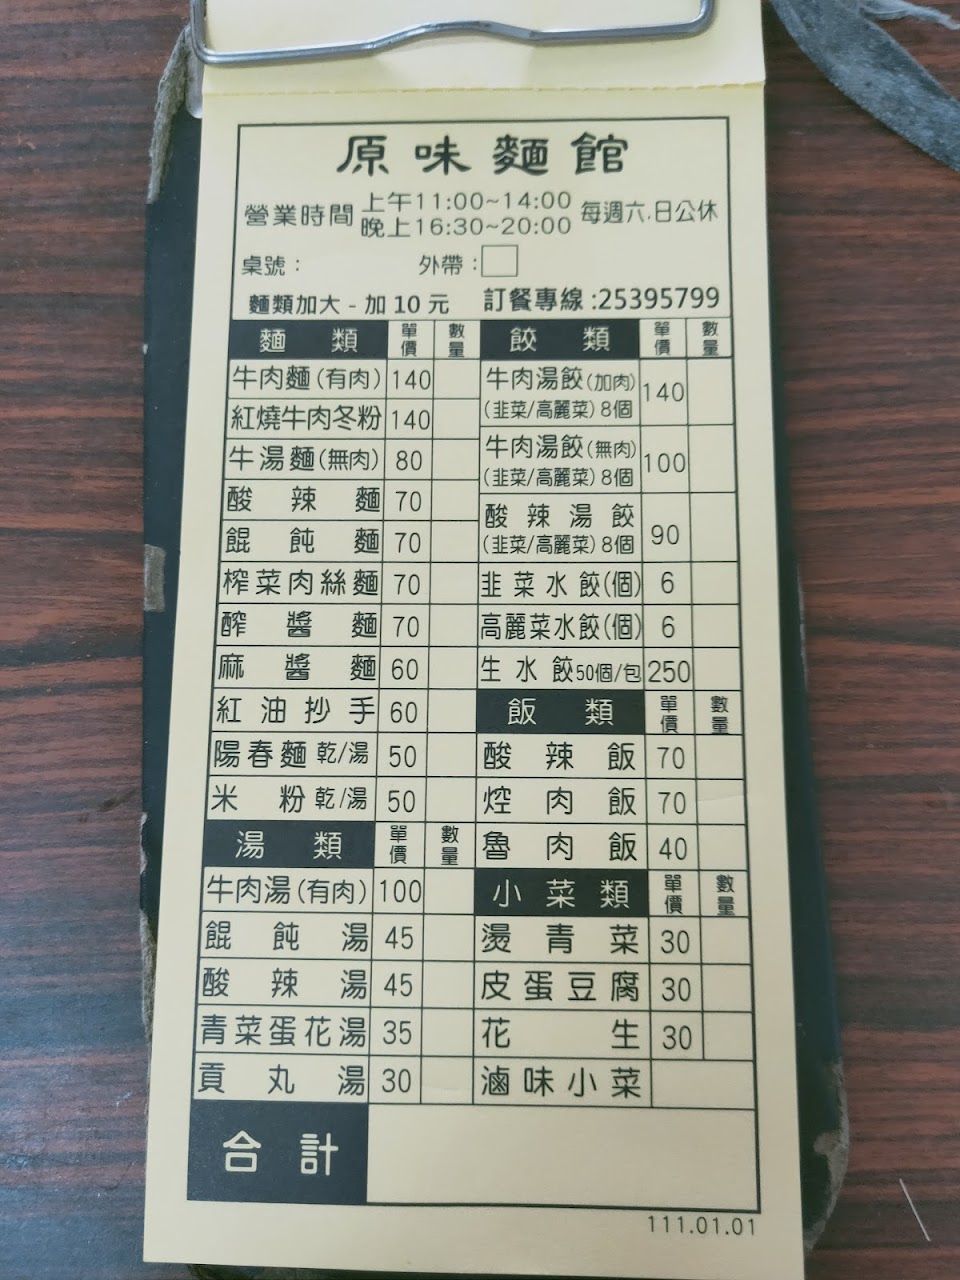 原味麵館
營業時間 上午11:00~14:00 每週六.日公休
晚上16:30~20:00
桌號： 外帶：
麵類加大 - 加 10 元 訂餐專線 :25395799
麵類 單價 數量
牛肉麵(有肉) 140
紅燒牛肉冬粉 140
牛湯麵(無肉) 80
酸辣麵 70
餛飩麵 70
榨菜肉絲麵 70
醡醬麵 70
麻醬麵 60
紅油抄手 60
陽春麵 乾/湯 50
米粉 乾/湯 50
湯類 單價 數量
牛肉湯(有肉) 100
餛飩湯 45
酸辣湯 45
青菜蛋花湯 35
貢丸湯 30
餃類 單價 數量
牛肉湯餃(加肉) 140
(韭菜/高麗菜) 8個
牛肉湯餃(無肉) 100
(韭菜/高麗菜) 8個
酸辣湯餃 90
(韭菜/高麗菜) 8個
韭菜水餃(個) 6
高麗菜水餃(個) 6
生水餃50個/包 250
飯類 單價 數量
酸辣飯 70
焢肉飯 70
魯肉飯 40
小菜類 單價 數量
燙青菜 30
皮蛋豆腐 30
花生 30
滷味小菜
合計
111.01.01